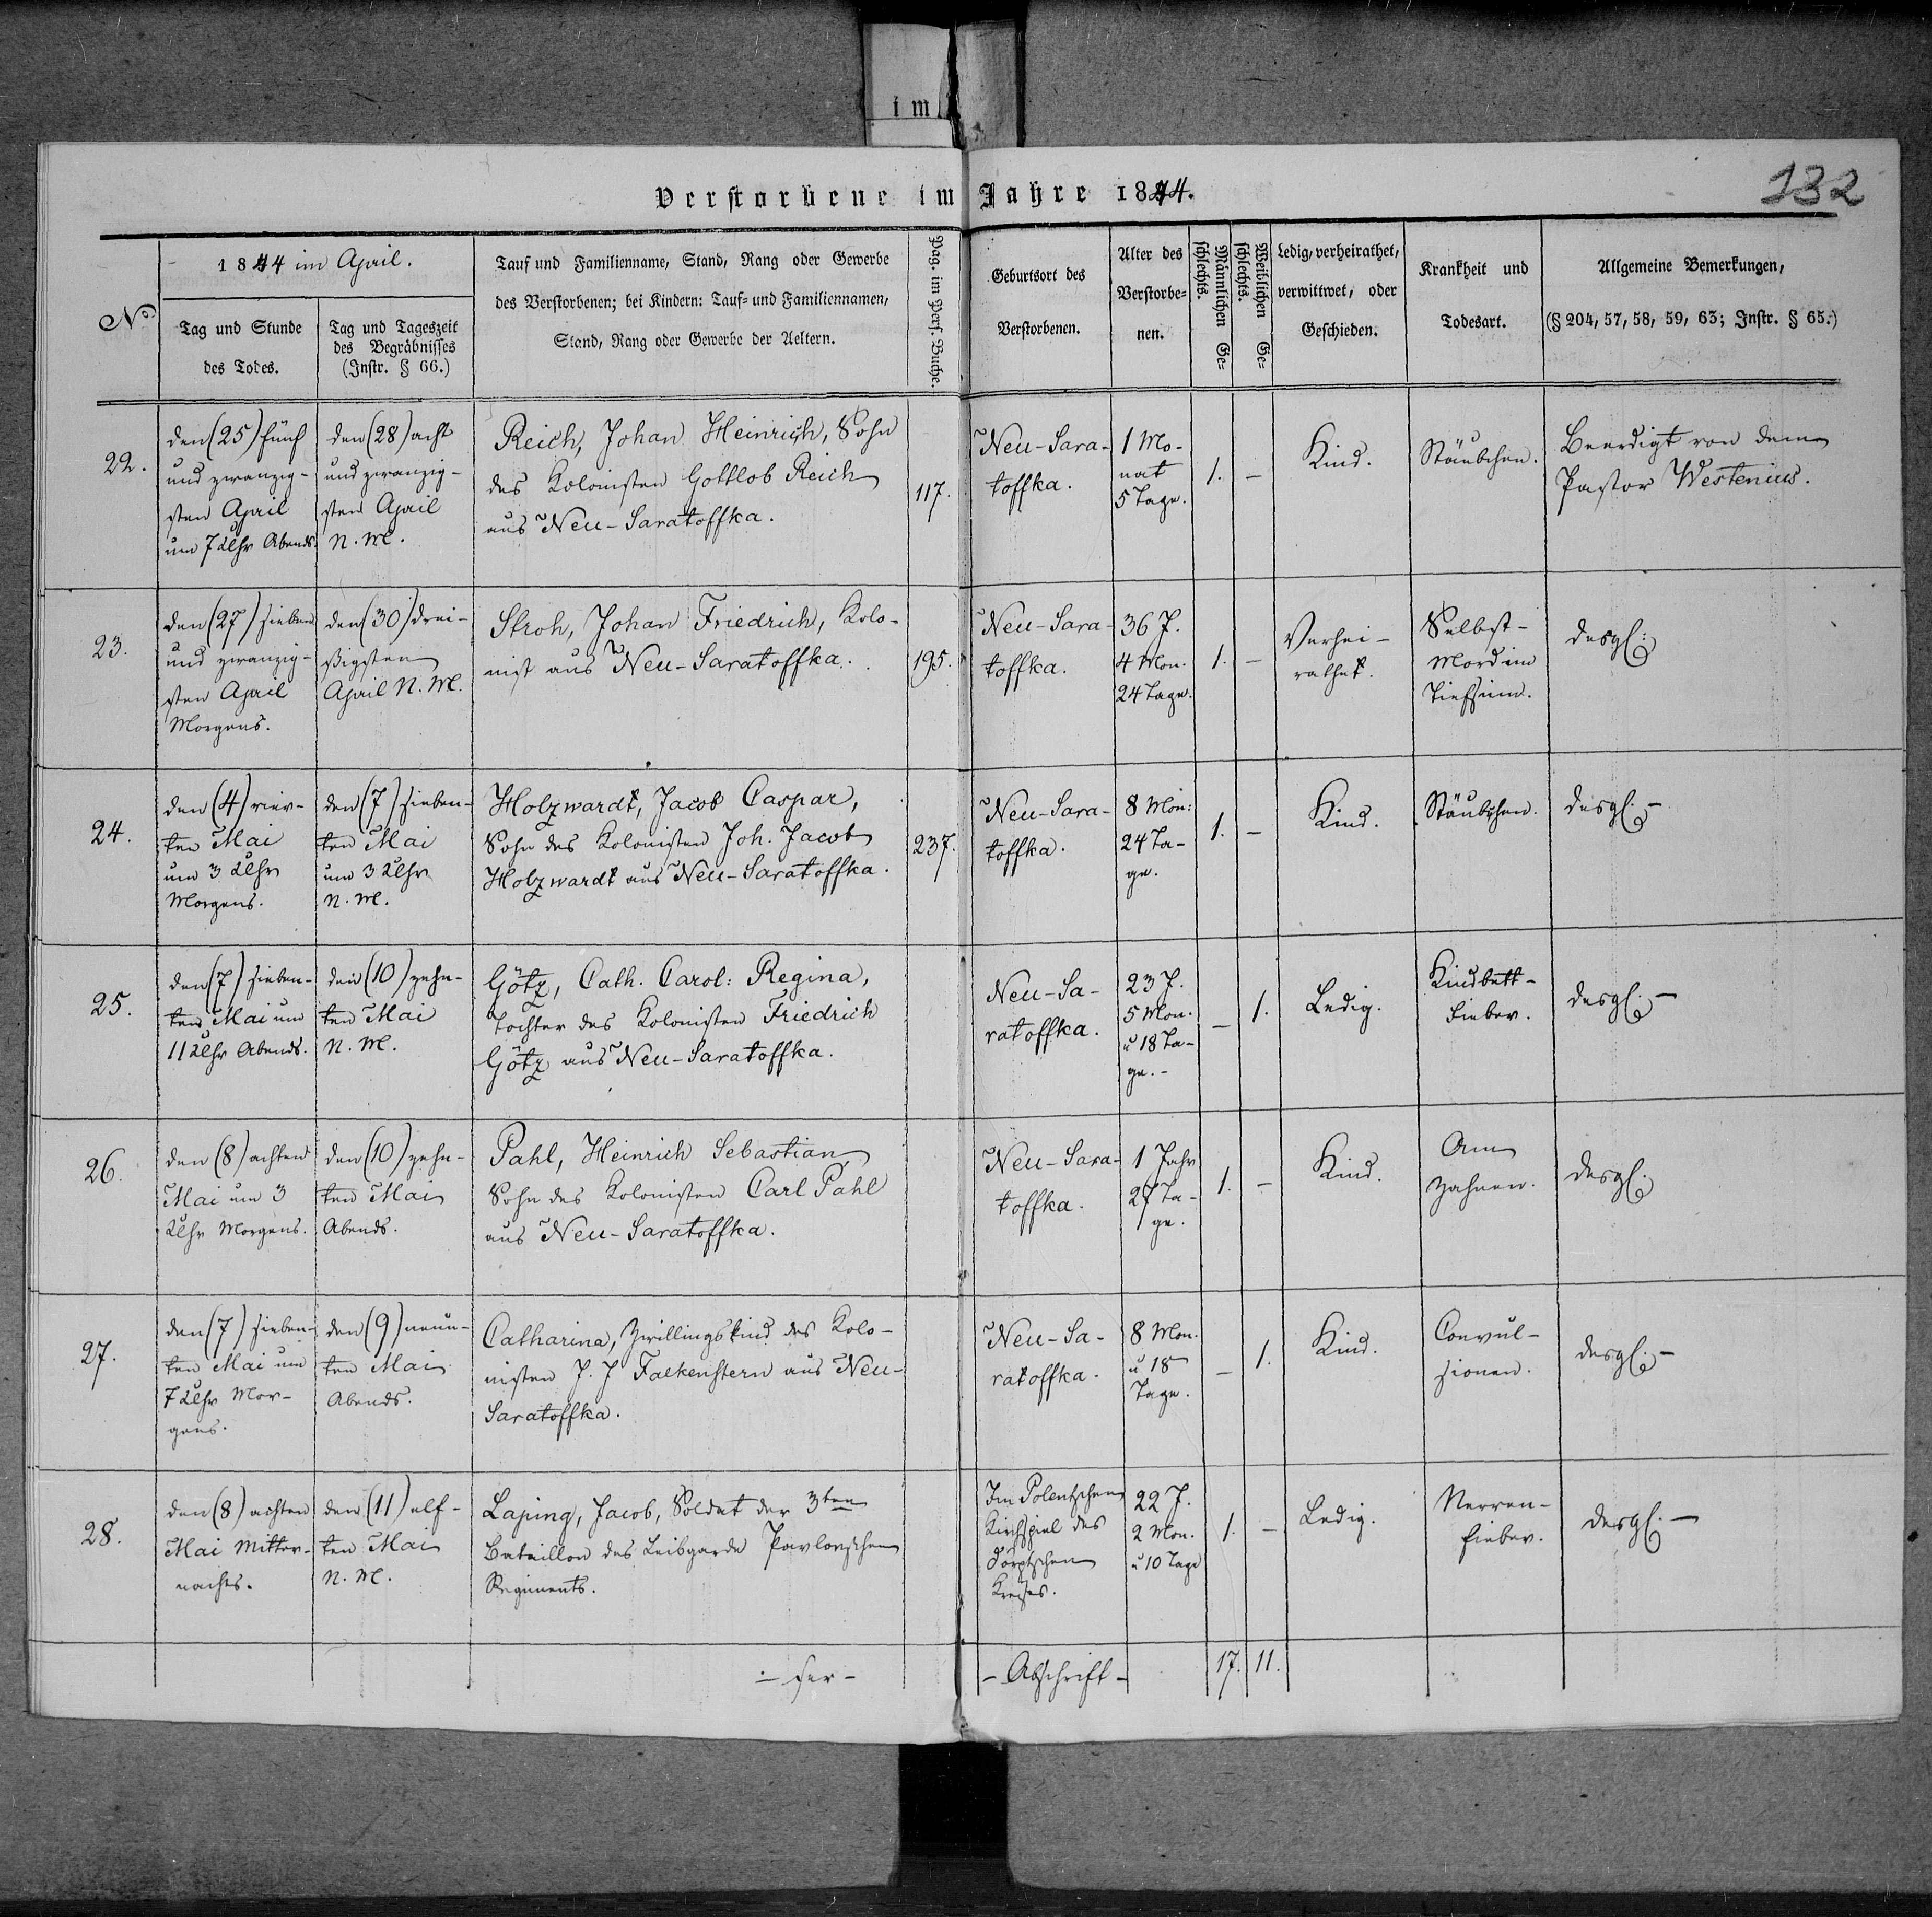 im
Verstorbene im Jahre 1844.
132
No
1844 im April.
Tag und Stunde
des Todes.
Tag und Tageszeit
des Begräbnisses
(Instr. § 66.)
Tauf und Familienname, Stand, Rang oder Gewerbe
des Verstorbenen; bei Kindern: Tauf- und Familiennamen,
Stand, Rang oder Gewerbe der Aeltern.
Pag. im Pers. Buche.
Geburtsort des
Verstorbenen.
Alter des
Verstorbe-
nen.
Männlichen Ge-
schlechts.
Weiblichen Ge-
schlechts.
Ledig, verheirathet,
verwittwet, oder
Geschieden.
Krankheit und
Todesart.
Allgemeine Bemerkungen,
(§ 204, 57, 58, 59, 63; Instr. § 65.)
22.
den (25) fünf
und zwanzig-
sten April
um 7 Uhr Abends.
den (28) acht
und zwanzig-
sten April
N. M.
Reich, Johan Heinrich, Sohn
des Kolonisten Gottlob Reich
aus Neu-Saratoffka.
117.
Neu-Sara-
toffka.
1 Mo-
nat
5 Tage.
1.
-
Kind.
Stäubchen.
Beerdigt von dem
Pastor Westenius.
23.
den (27) sieben
und zwanzig-
sten April
Morgens.
den (30) drei-
ßigsten
April N. M.
Stroh, Johan Friedrich, Kolo-
nist aus Neu-Saratoffka.
195.
Neu-Sara-
toffka.
36 J.
4 Mon.
24 Tage.
1.
-
Verhei-
rathet.
Selbst-
Mord im
Tiefsinn.
desgl:
24.
den (4) vier-
ten Mai
um 3 Uhr
Morgens.
den (7) sieben-
ten Mai
um 3 Uhr
N. M.
Holzwardt, Jacob Caspar,
Sohn des Kolonisten Joh. Jacob
Holzwardt aus Neu-Saratoffka.
237.
Neu-Sara-
toffka.
8 Mon:
24 Ta-
ge.
1.
-
Kind.
Stäubchen.
desgl. -
25.
den (7) sieben-
ten Mai um
11 Uhr Abends.
den (10) zehn-
ten Mai
N. M.
Götz, Cath. Carol: Regina,
Tochter des Kolonisten Friedrich
Götz aus Neu-Saratoffka.
Neu-Sa-
ratoffka.
23 J.
5 Mon.
u 18 Ta-
ge. -
-
1.
Ledig.
Kindbett-
Fieber.
desgl. -
26.
den (8) achten
Mai um 3
Uhr Morgens.
den (10) zehn-
ten Mai
Abends.
Pahl, Heinrich Sebastian
Sohn des Kolonisten Carl Pahl
aus Neu-Saratoffka.
Neu-Sara-
toffka.
1 Jahr
27 Ta-
ge.
1.
-
Kind.
Am
Zahnen.
desgl.
27.
den (7) sieben-
ten Mai um
7 Uhr Mor-
gens.
den (9) neun-
ten Mai
Abends.
Catharina, Zwillingskind des Kolo-
nisten P. J Falkenstern aus Neu-
Saratoffka.
Neu-Sa-
ratoffka.
8 Mon.
u 18
Tage.
-
1.
Kind.
Convul-
sionen.
desgl. -
28.
den (8) achten
Mai Mitter-
nachts.
den (11) elf-
ten Mai
N. M.
Laping, Jacob, Soldat der 3ten
Bataillon des Leibgarde Pavlovschen
Regiments.
Im Polentschen
Kirchspiel des
Dörptschen
Kreises.
22 J.
2 Mon.
u 10 Tage
1.
-
Ledig.
Nerven-
fieber.
desgl. -
- Abschrift -
17.
11.